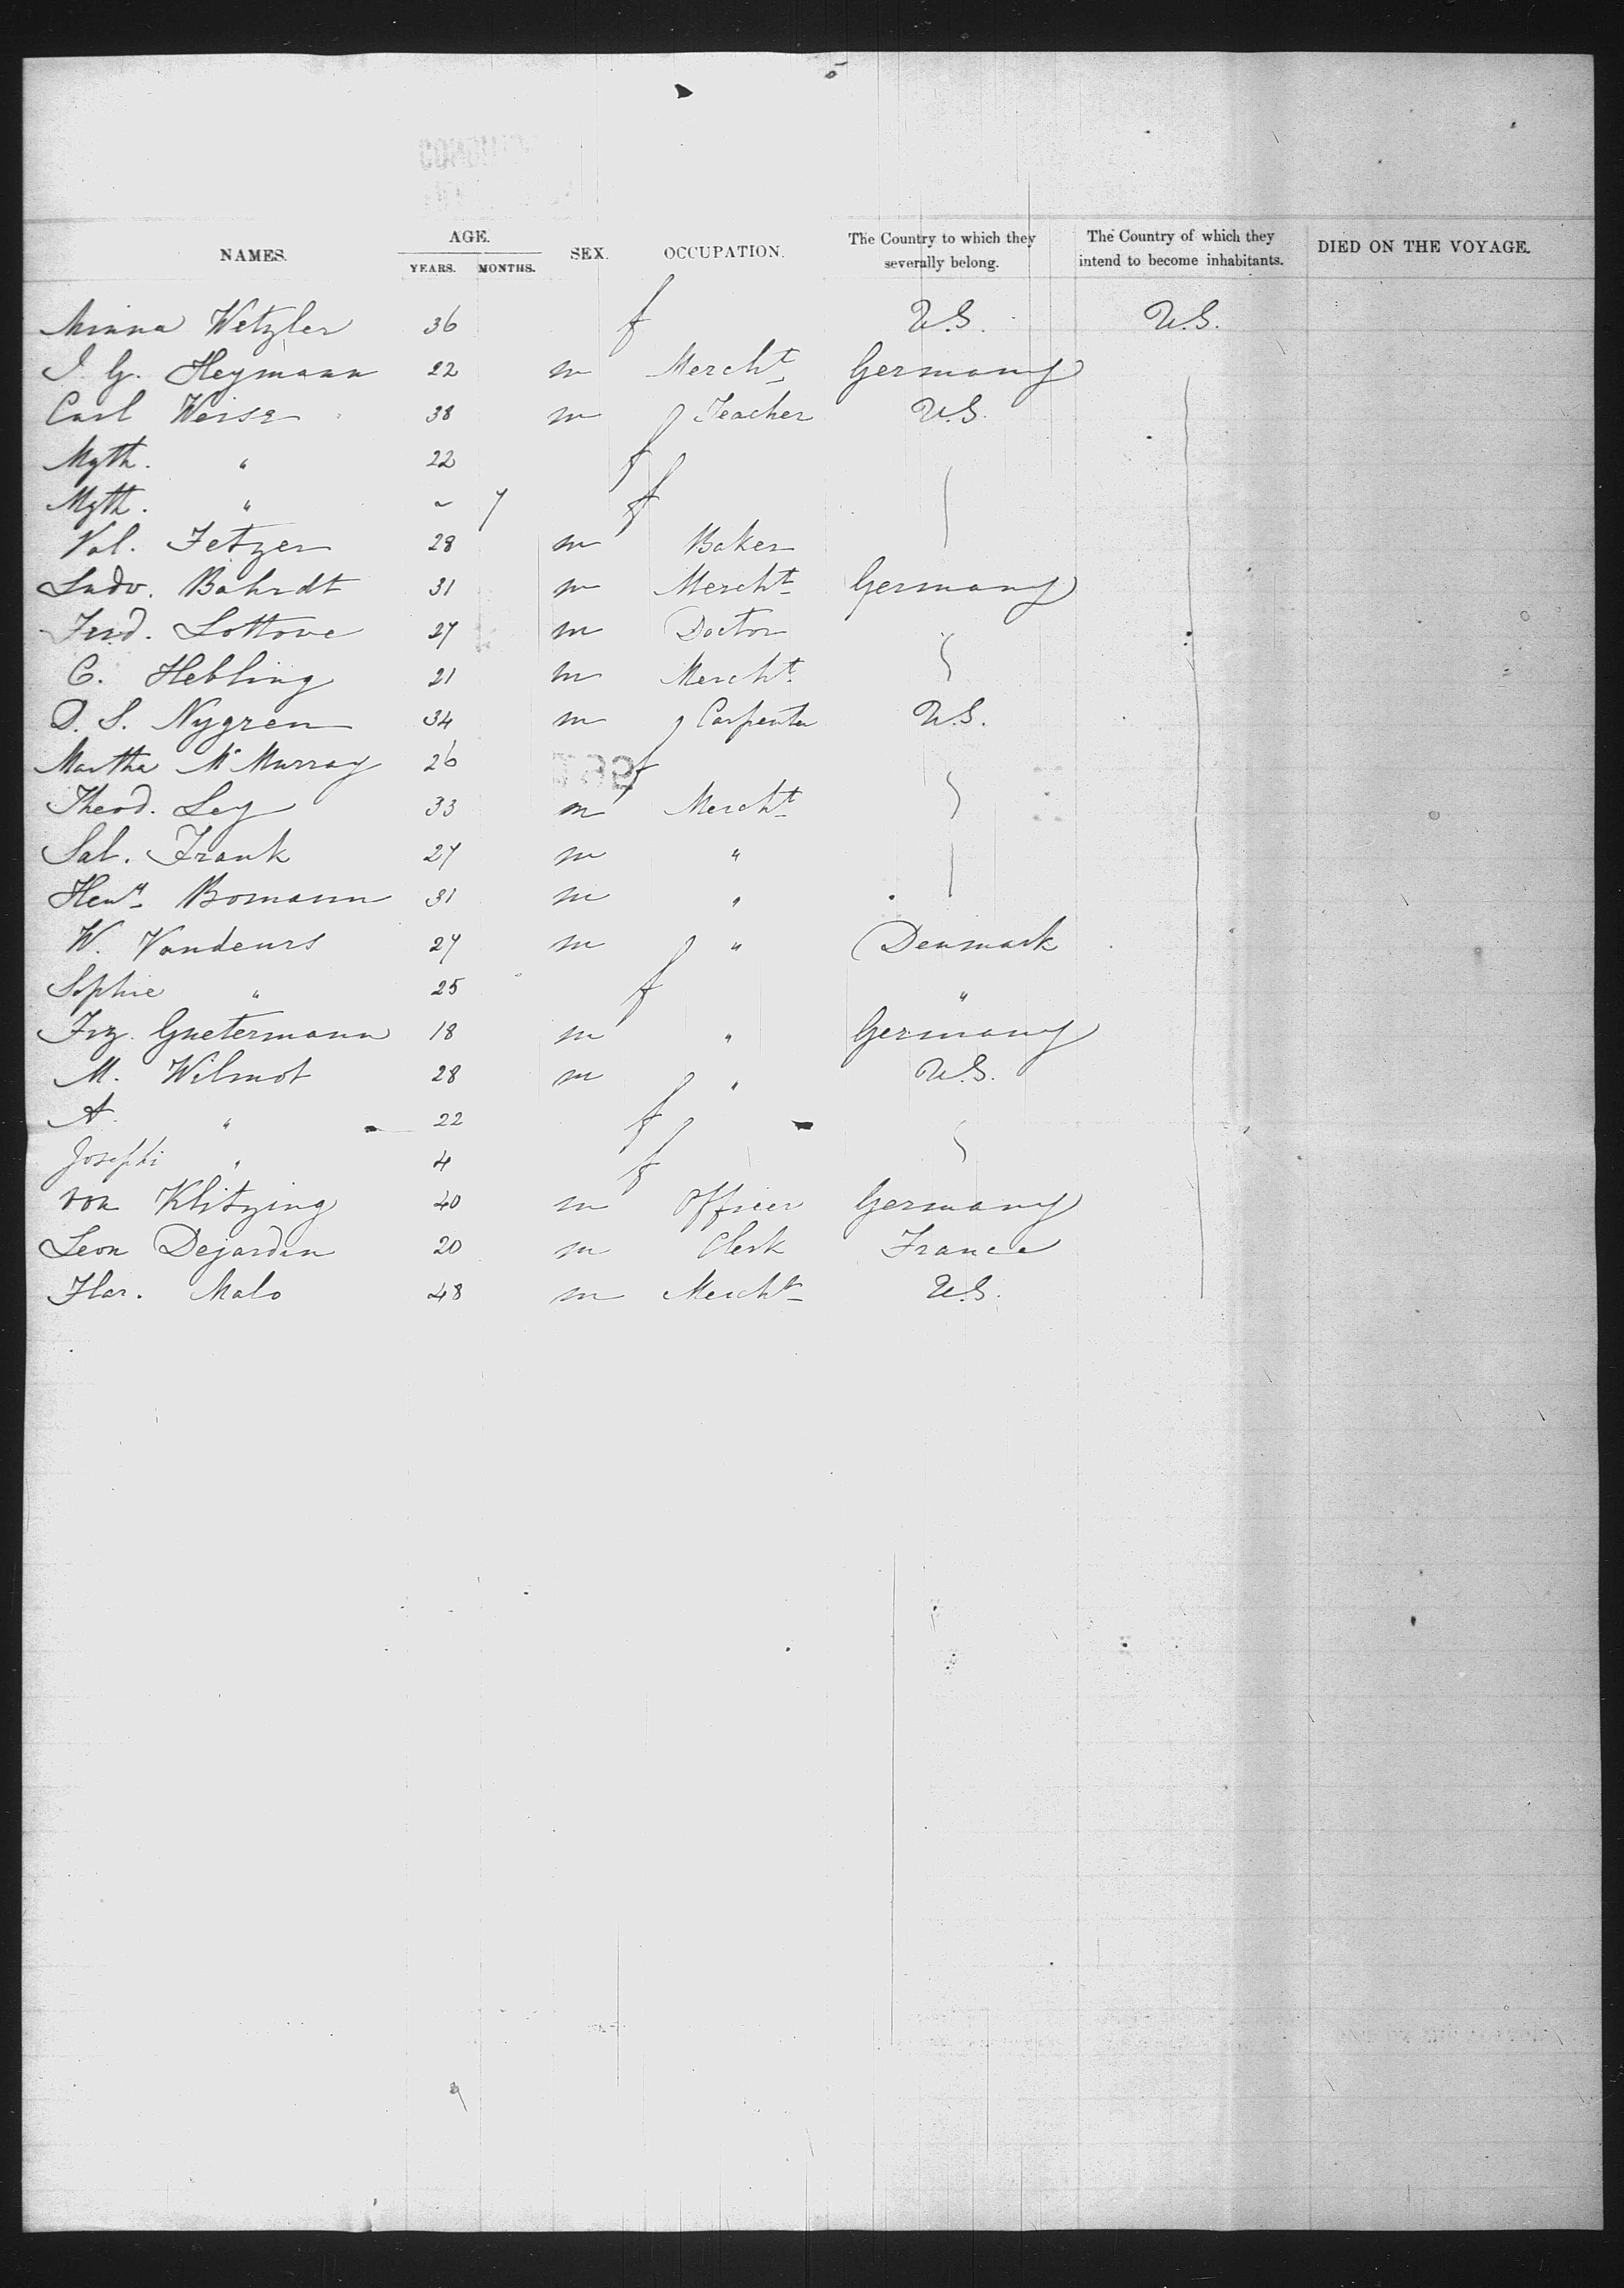 NAMES. AGE. YEARS. MONTHS. SEX. OCCUPATION. The Country to which they severally belong. The Country of which they intend to become inhabitants. DIED ON THE VOYAGE.
Minna Wetzler 36 f U.S. U.S.
I. G. Heymann 22 m Mercht Germany
Carl Weise 38 m Teacher U.S.
Mgth. " 22 f
Mgth. " ~ 7 f
Val. Fetzer 28 m Baker
Ludv. Bahrdt 31 m Mercht Germany
Ferd. Lottove 27 m Doctor
C. Hebling 21 m Mercht
D. S. Nygren 34 m Carpenter U.S.
Martha McMurray 26 f
Theod. Ley 33 m Mercht
Sal. Frank 27 m "
Heny Bomann 31 m "
W. Vandeurs 27 m " Denmark
Sophie " 25 f "
Frz. Guetermann 18 m " Germany
M. Wilmot 28 m " U.S.
A. " 22 f
Josephi " 4 f
von Klitzing 40 m Officer Germany
Leon Dejardin 20 m Clerk France
Flor. Malo 48 m Mercht U.S.